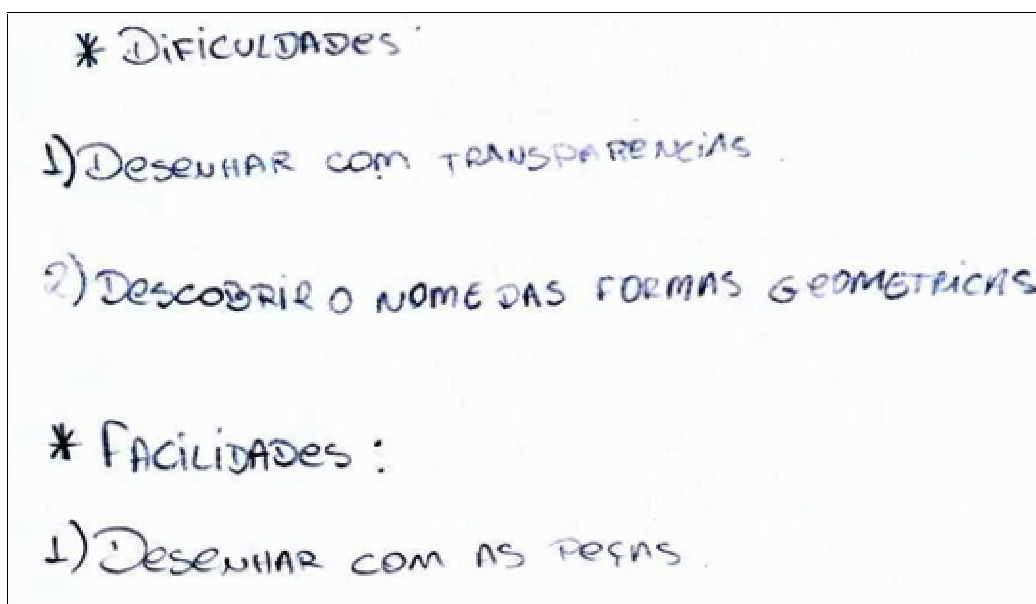 * DIFICULDADES
1) DESENHAR COM TRANSPARENCIAS
2) DESCOBRIR O NOME DAS FORMAS GEOMETRICAS
* FACILIDADES :
1) DESENHAR COM AS PEÇAS